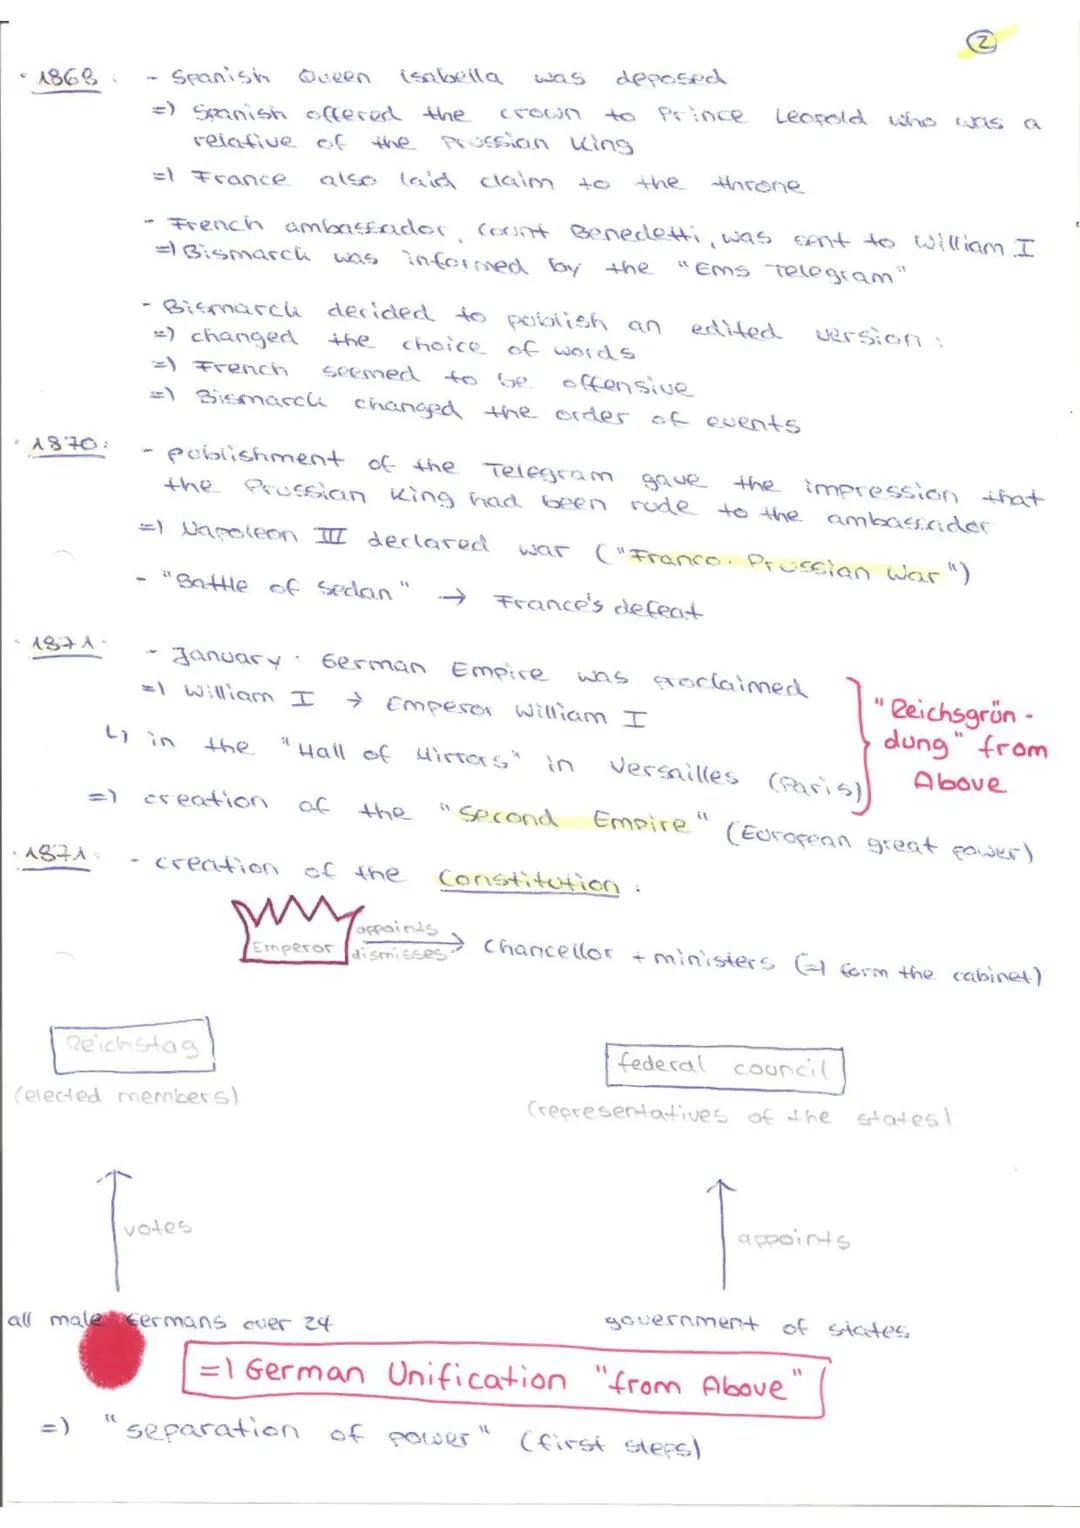 2
· 1868: - Spanish Queen Isabella was deposed
=) Spanish offered the crown to Prince Leopold who was a
relative of the Prussian King
=) France also laid claim to the throne
- French ambassador, Count Benedetti, was sent to William I
=) Bismarck was informed by the "Ems Telegram"
- Bismarck decided to publish an edited version:
=) changed the choice of words
=) French seemed to be offensive
=) Bismarck changed the order of events
· 1870: - publishment of the Telegram gave the impression that
the Prussian King had been rude to the ambassador
=) Napoleon III declared war ("Franco-Prussian War")
- "Battle of Sedan" → France's defeat
· 1871: - January: German Empire was proclaimed
=) William I → Emperor William I
↳ in the "Hall of Mirrors" in Versailles (Paris)
"Reichsgrün-
dung" from
Above
=) creation of the "Second Empire" (European great power)
· 1871: - creation of the Constitution:
Emperor appoints
dismisses → Chancellor + ministers (=) form the cabinet)
Reichstag
(elected members)
federal council
(representatives of the states)
votes
appoints
all male Germans over 24
government of states
=) German Unification "from Above"
=) "separation of power" (first steps)